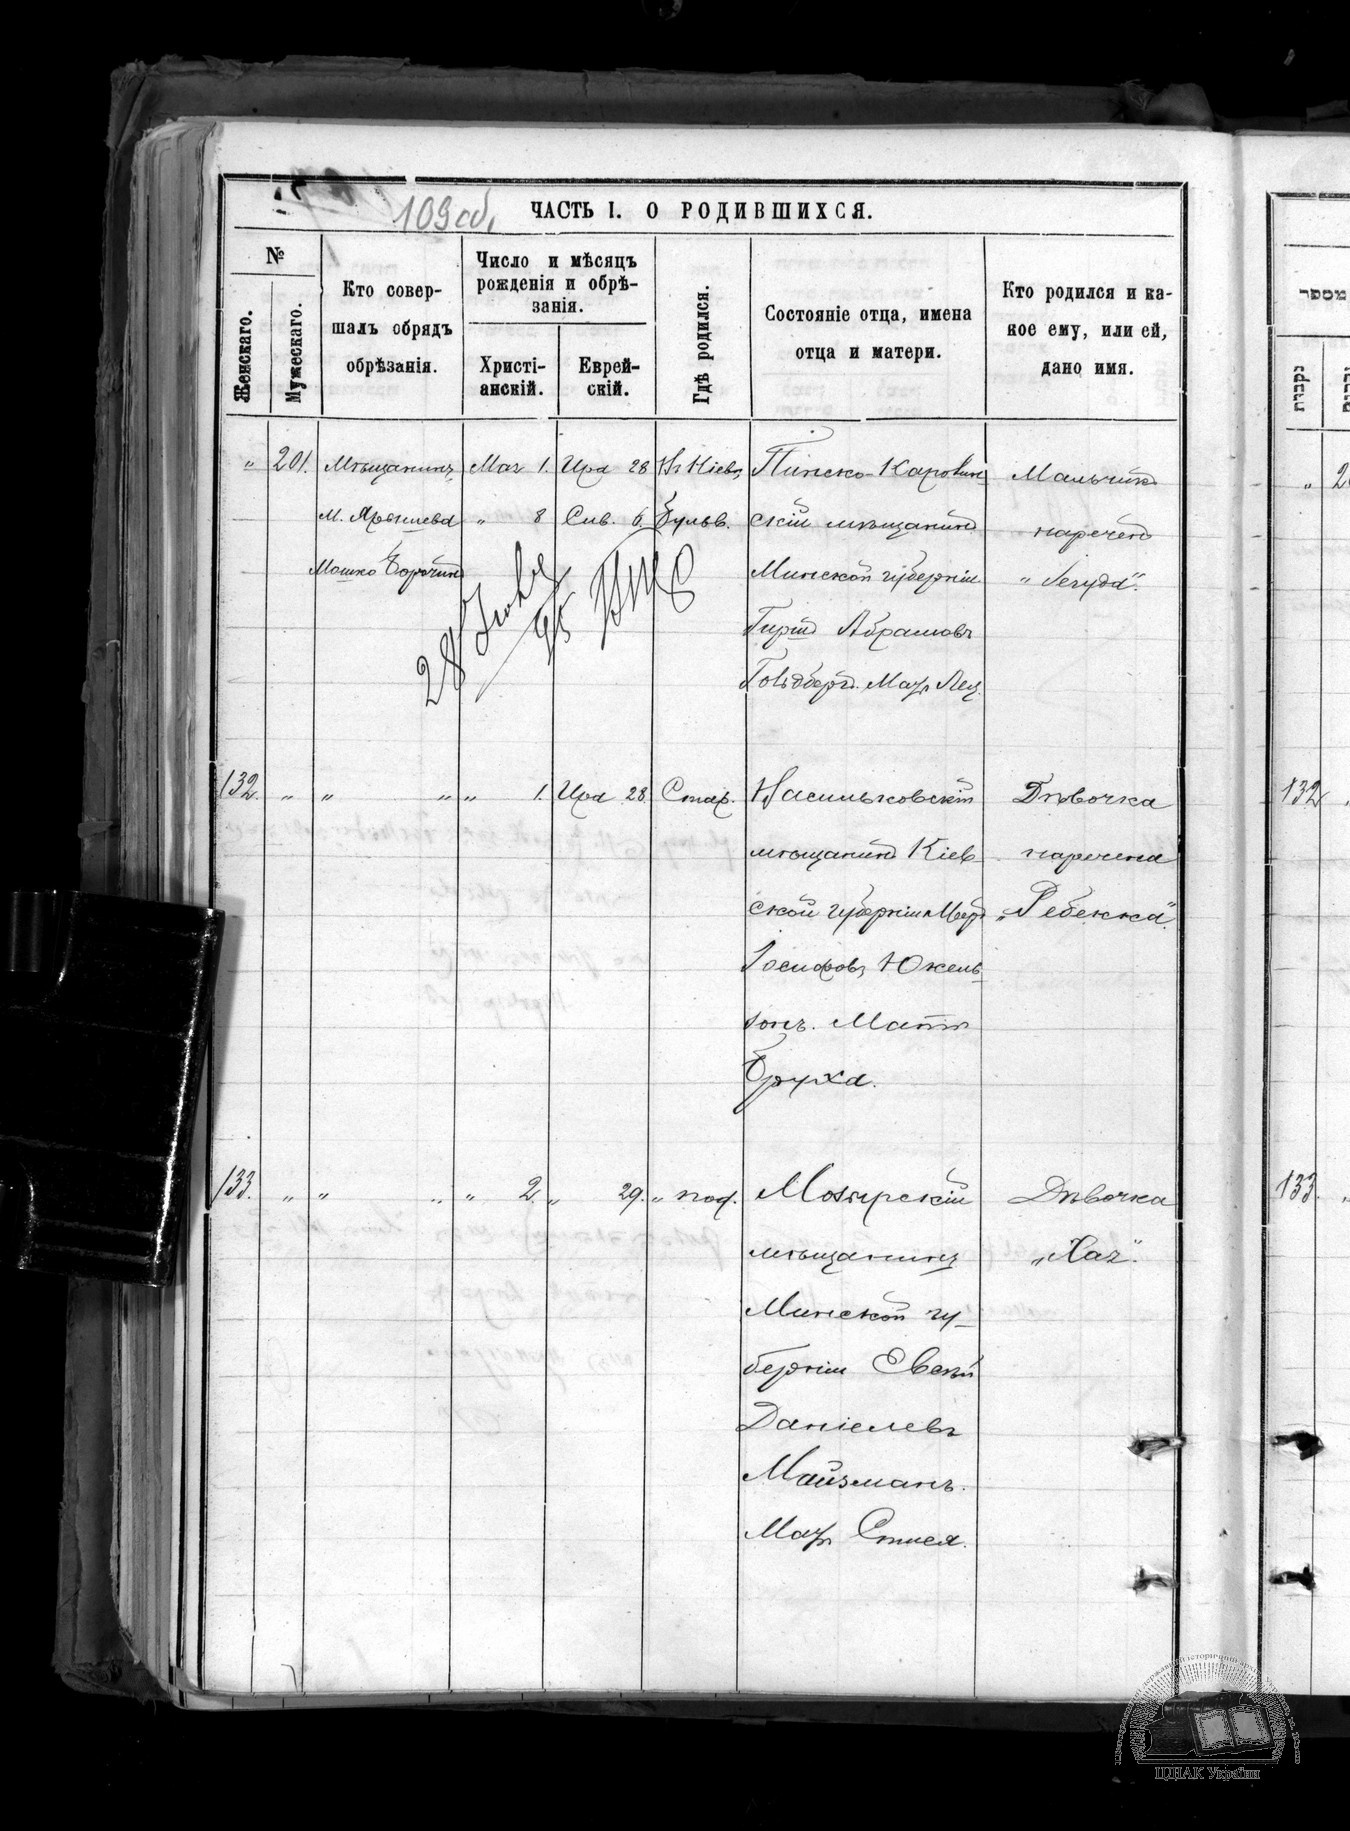 109 об.
ЧАСТЬ I. О РОДИВШИХСЯ.
№
Женскаго.
Мужескаго.
Кто совер-
шалъ обрядъ
обрѣзанія.
Число и мѣсяцъ
рожденія и обрѣ-
занія.
Христі-
анскій.
Еврей-
скій.
Гдѣ родился.
Состояніе отца, имена
отца и матери.
Кто родился и ка-
кое ему, или ей,
дано имя.
„ 201. Мѣщанинъ Мая 1. Ира 28 Въ Кіевѣ
М. „ 8 Сив. 6. Бульв.
Мошко
Пинско-Каровин
скій мѣщанинъ
Минской губерніи
Гиршъ Абрамовъ
Гольдбергъ. Мать Лея.
Мальчикъ
нареченъ
„Іегуда“.
132. „ „ „ „ 1. Ира 28. Стар.
Васильковскій
мѣщанинъ Кіев
ской губерніи
Іосифовъ Юкель-
сонъ. Мать
Бруха.
Дѣвочка
наречена
„Ребекка“.
133. „ „ „ „ 2. „ 29. „ под.
Мозырскій
мѣщанинъ
Минской гу-
берніи Евсѣй
Даніелевъ
Майзманъ.
Мать Стися.
Дѣвочка
„Хая“.
מספר
נקבות
„ 20
132
133
ЦДІАК України